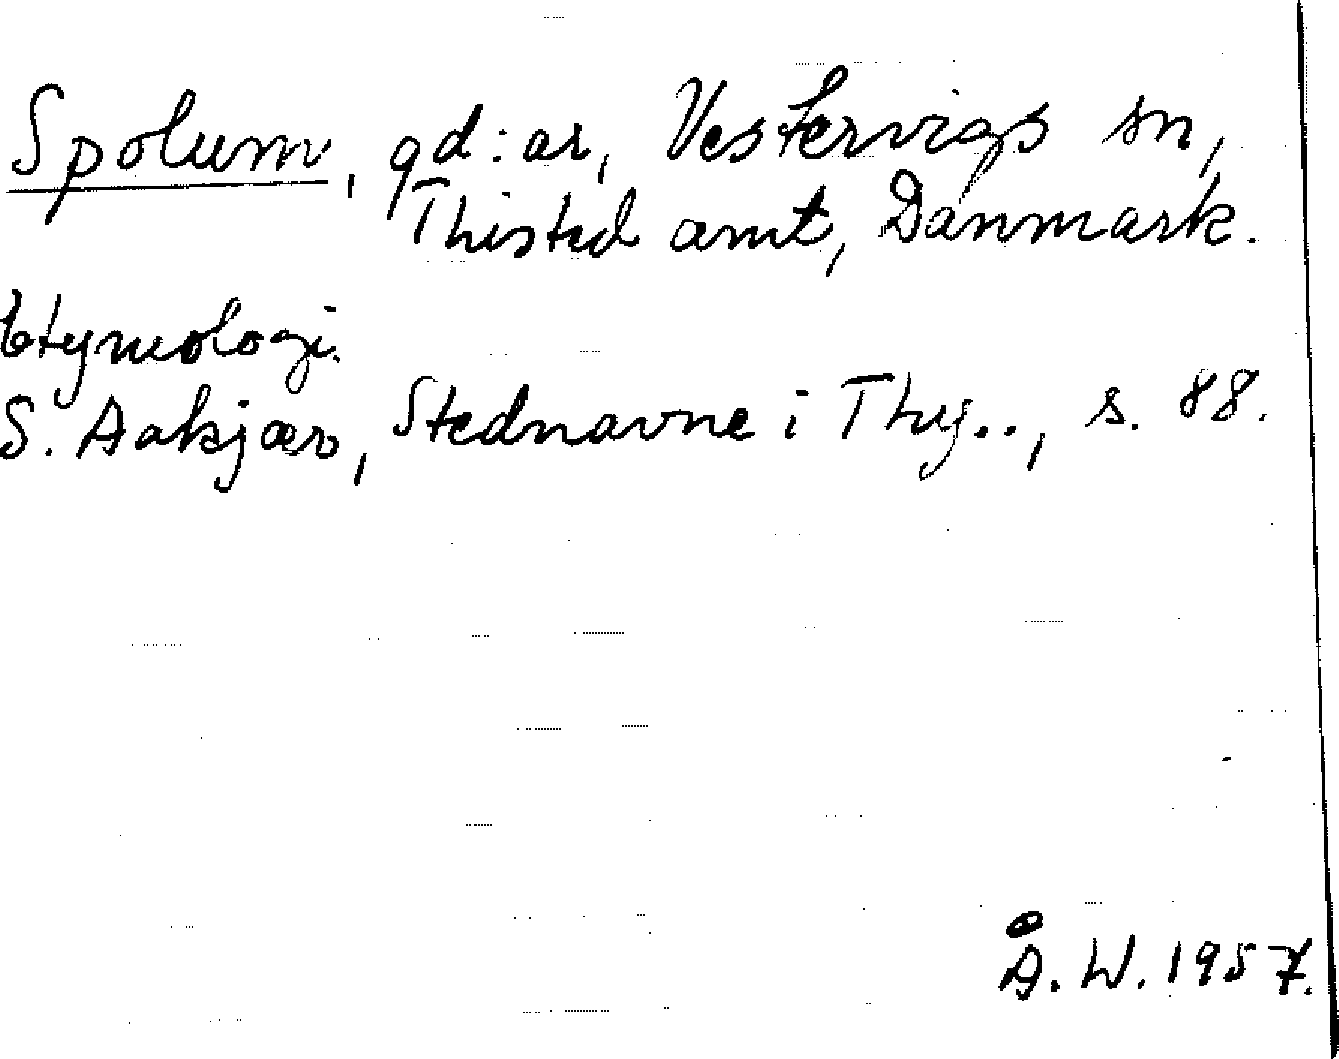 Spolum, gd:ar, Vestervigs sn,
Thisted amt, Danmark.
Etymologi.
S. Aakjær, Stednavne i Thy.., s. 88.
Å. W. 1957.